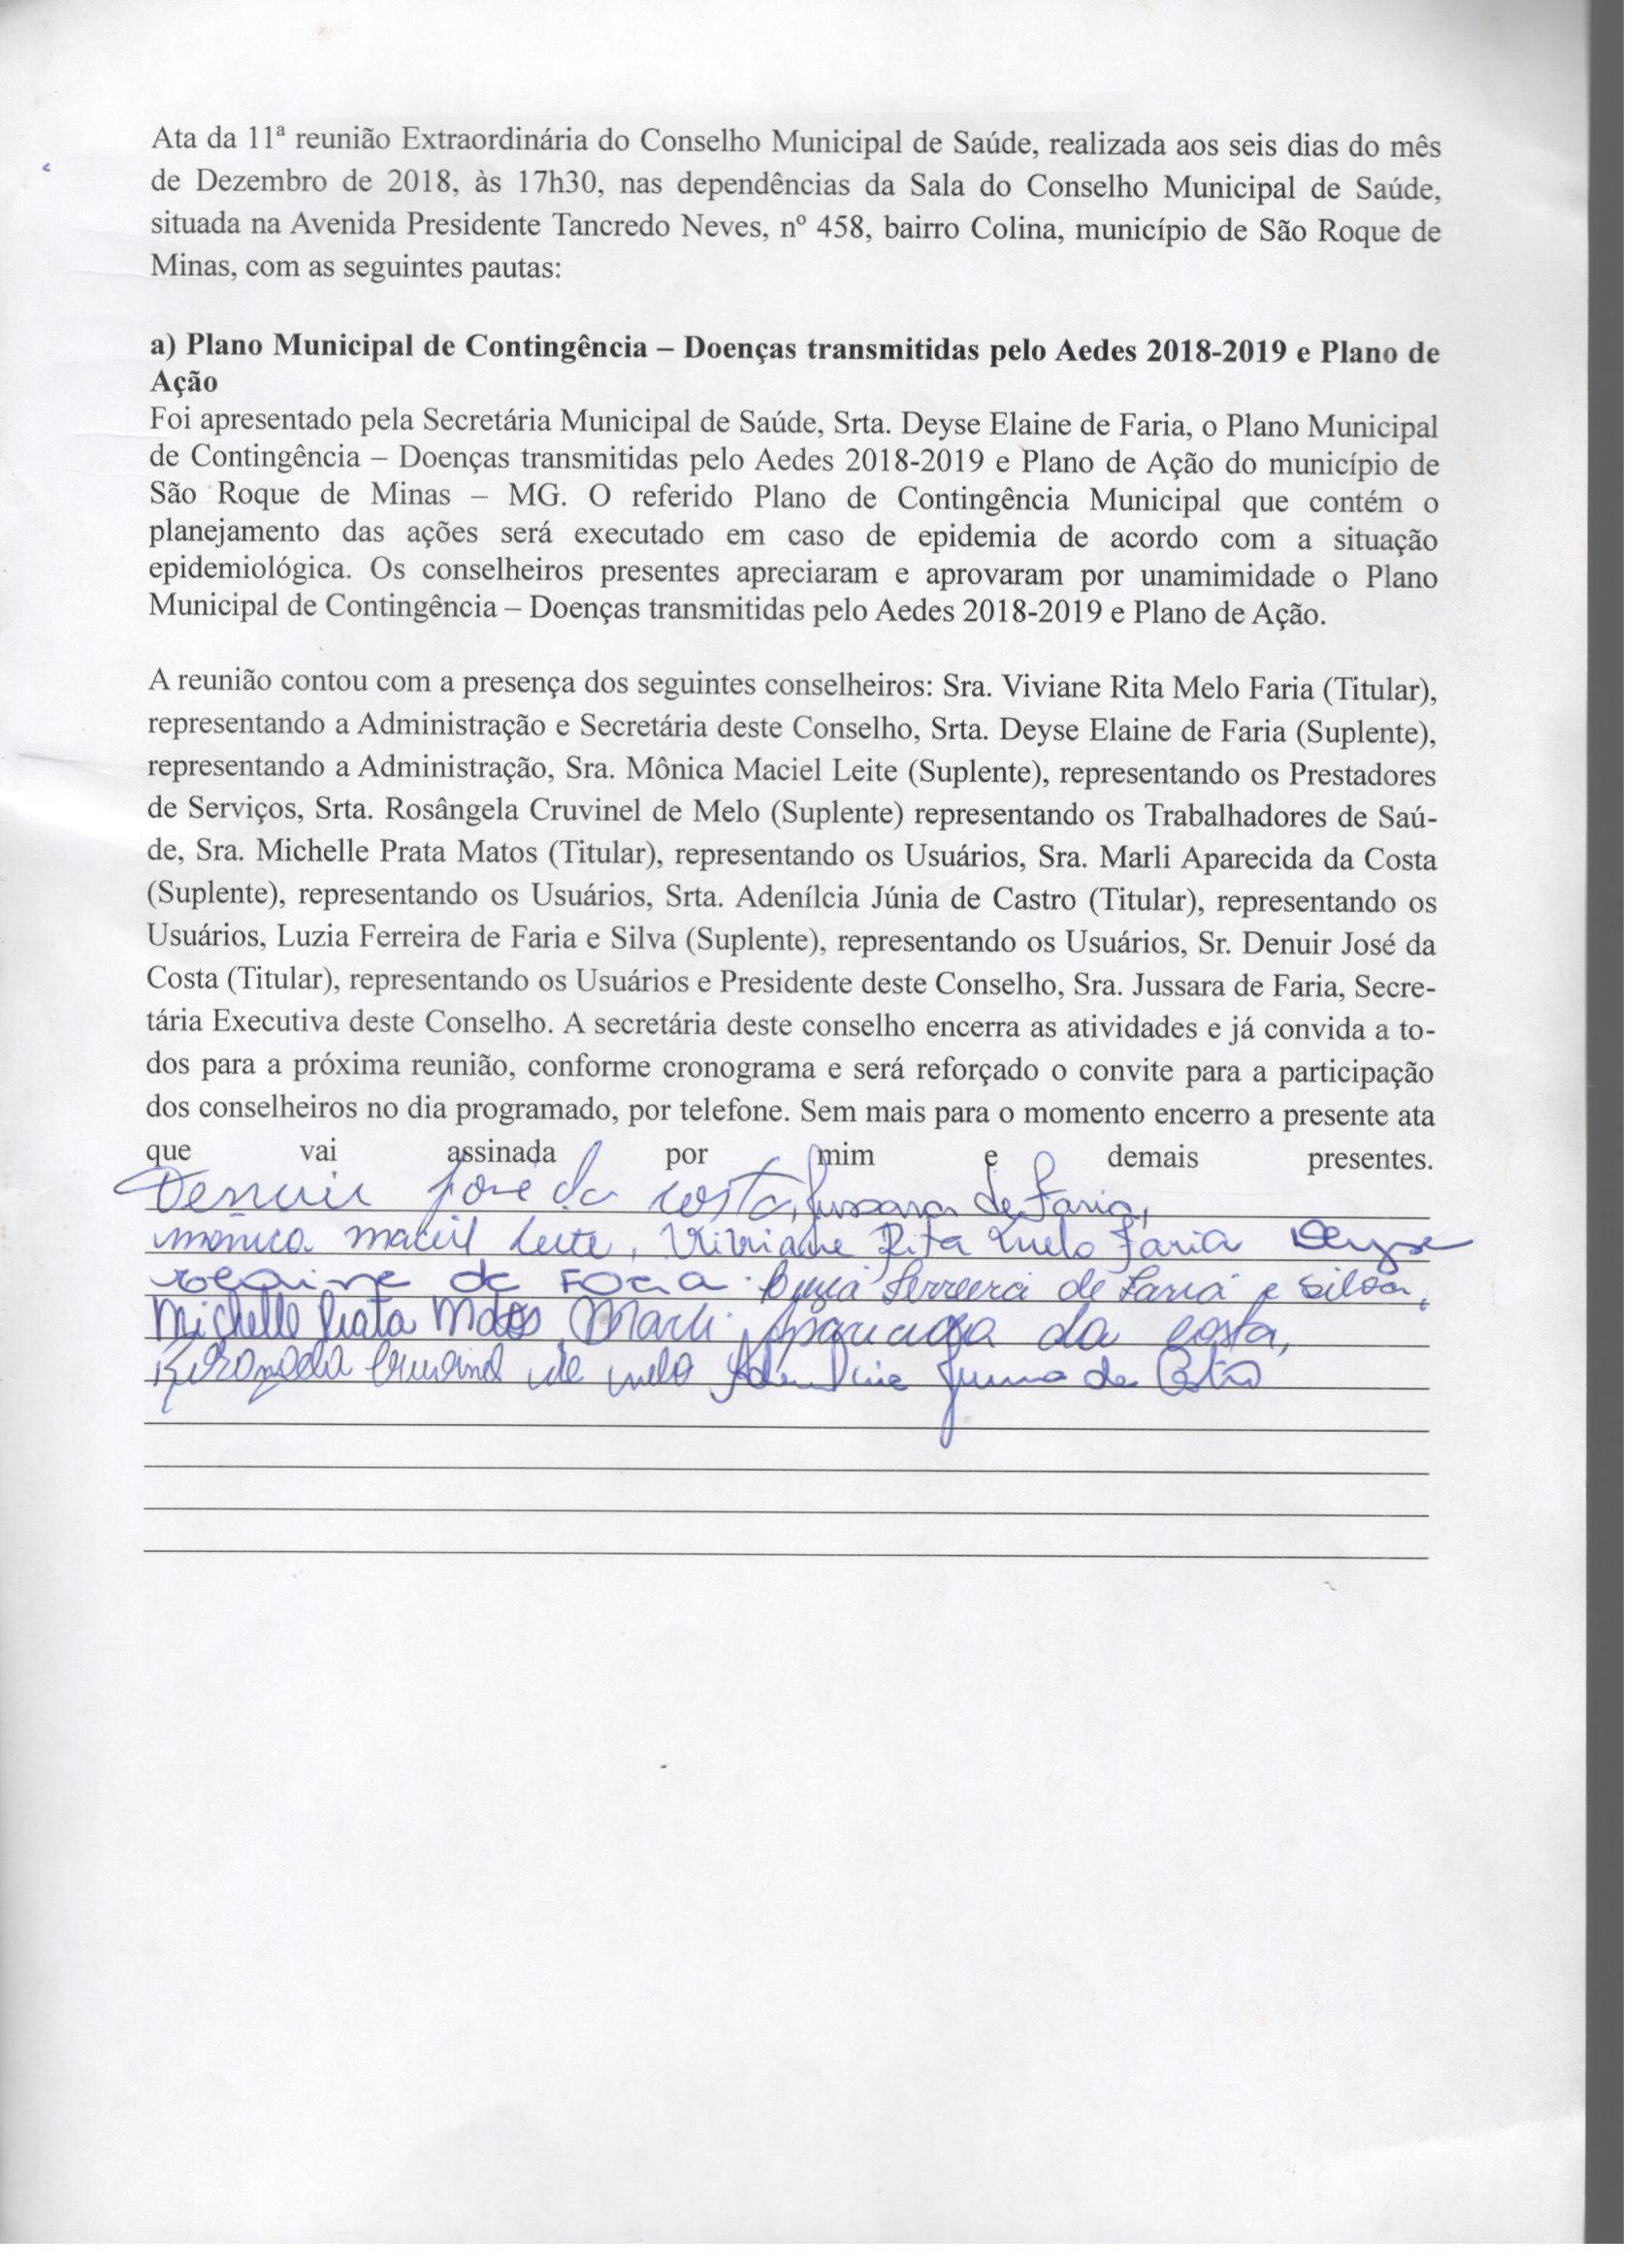 Ata da 11ª reunião Extraordinária do Conselho Municipal de Saúde, realizada aos seis dias do mês
de Dezembro de 2018, às 17h30, nas dependências da Sala do Conselho Municipal de Saúde,
situada na Avenida Presidente Tancredo Neves, nº 458, bairro Colina, município de São Roque de
Minas, com as seguintes pautas:
a) Plano Municipal de Contingência – Doenças transmitidas pelo Aedes 2018-2019 e Plano de
Ação
Foi apresentado pela Secretária Municipal de Saúde, Srta. Deyse Elaine de Faria, o Plano Municipal
de Contingência – Doenças transmitidas pelo Aedes 2018-2019 e Plano de Ação do município de
São Roque de Minas – MG. O referido Plano de Contingência Municipal que contém o
planejamento das ações será executado em caso de epidemia de acordo com a situação
epidemiológica. Os conselheiros presentes apreciaram e aprovaram por unamimidade o Plano
Municipal de Contingência – Doenças transmitidas pelo Aedes 2018-2019 e Plano de Ação.
A reunião contou com a presença dos seguintes conselheiros: Sra. Viviane Rita Melo Faria (Titular),
representando a Administração e Secretária deste Conselho, Srta. Deyse Elaine de Faria (Suplente),
representando a Administração, Sra. Mônica Maciel Leite (Suplente), representando os Prestadores
de Serviços, Srta. Rosângela Cruvinel de Melo (Suplente) representando os Trabalhadores de Saú-
de, Sra. Michelle Prata Matos (Titular), representando os Usuários, Sra. Marli Aparecida da Costa
(Suplente), representando os Usuários, Srta. Adenílcia Júnia de Castro (Titular), representando os
Usuários, Luzia Ferreira de Faria e Silva (Suplente), representando os Usuários, Sr. Denuir José da
Costa (Titular), representando os Usuários e Presidente deste Conselho, Sra. Jussara de Faria, Secre-
tária Executiva deste Conselho. A secretária deste conselho encerra as atividades e já convida a to-
dos para a próxima reunião, conforme cronograma e será reforçado o convite para a participação
dos conselheiros no dia programado, por telefone. Sem mais para o momento encerro a presente ata
que vai assinada por mim e demais presentes.
Denuir José da Costa, Jussara de Faria,
Mônica Maciel Leite, Viviane Rita Melo Faria Deyse
de Faria Luzia Ferreira de Faria e Silva,
Michelle Prata Matos Marli Aparecida da Costa,
Rosangela Cruvinel de Melo Júnia de Castro